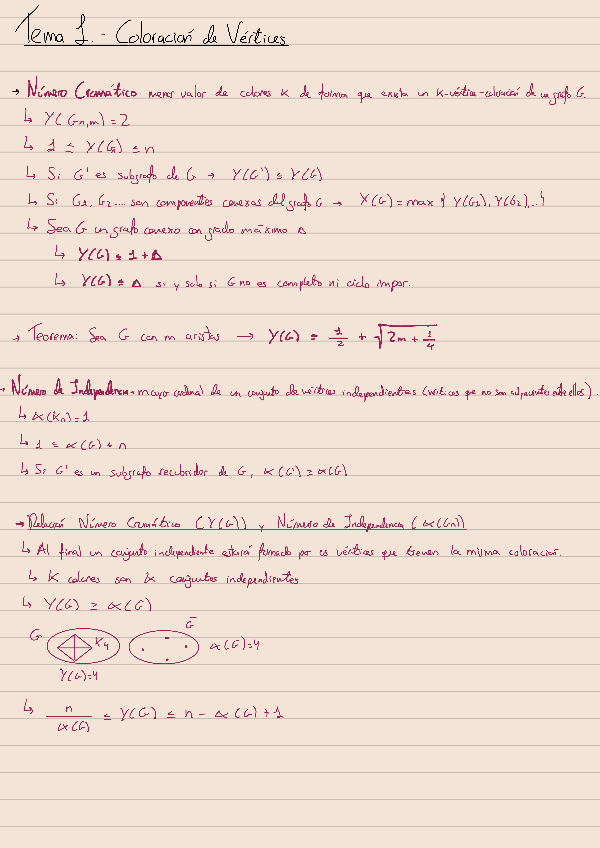 Tema 1.- Coloración de Vértices
→ Número Cromático menor valor de colores K de forma que exista un K-vértice-coloración de un grafo G.
↳ γ(Gn,m) = 2
↳ 1 ≤ γ(G) ≤ n
↳ Si G' es subgrafo de G → γ(G') ≤ γ(G)
↳ Si G1, G2.... son componentes conexas del grafo G → γ(G) = max { γ(G1), γ(G2)...}
↳ Sea G un grafo conexo con grado máximo Δ
↳ γ(G) ≤ 1 + Δ
↳ γ(G) ≤ Δ si y solo si G no es completo ni ciclo impar.
→ Teorema: Sea G con m aristas → γ(G) ≤ 1/2 + √(2m + 1/4)
→ Número de Independencia → mayor cardinal de un conjunto de vértices independientes (vértices que no son adyacentes entre ellos).
↳ α(Kn) = 1
↳ 1 ≤ α(G) ≤ n
↳ Si G' es un subgrafo recubridor de G, α(G') ≥ α(G)
→ Relación Número Cromático (γ(G)) y Número de Independencia (α(G))
↳ Al final un conjunto independiente estará formado por los vértices que tienen la misma coloración.
↳ K colores son K conjuntos independientes
↳ γ(G) ≥ α(G)
G K4 G̅ α(G)=4
γ(G)=4
↳ n/α(G) ≤ γ(G) ≤ n - α(G) + 1